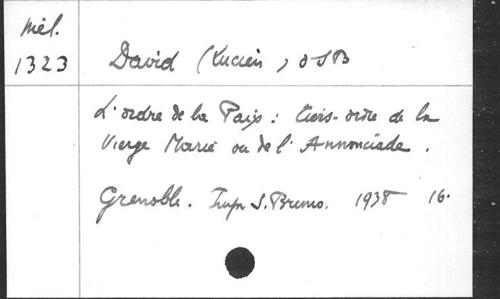 Mél.
1323
David (Lucien), OSB
L'ordre de la Paix : tiers-ordre de la
Vierge Marie ou de l'Annonciade.
Grenoble. Impr S. Bruno. 1938 16.